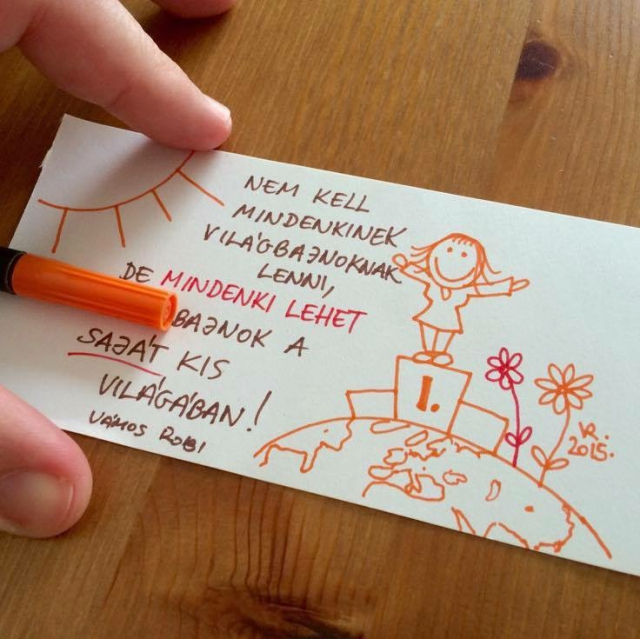 NEM KELL
MINDENKINEK
VILÁGBAJNOKNAK
LENNI,
DE MINDENKI LEHET
BAJNOK A
SAJÁT KIS
VILÁGÁBAN!
VÁMOS ROBI
1.
VR.
2015.